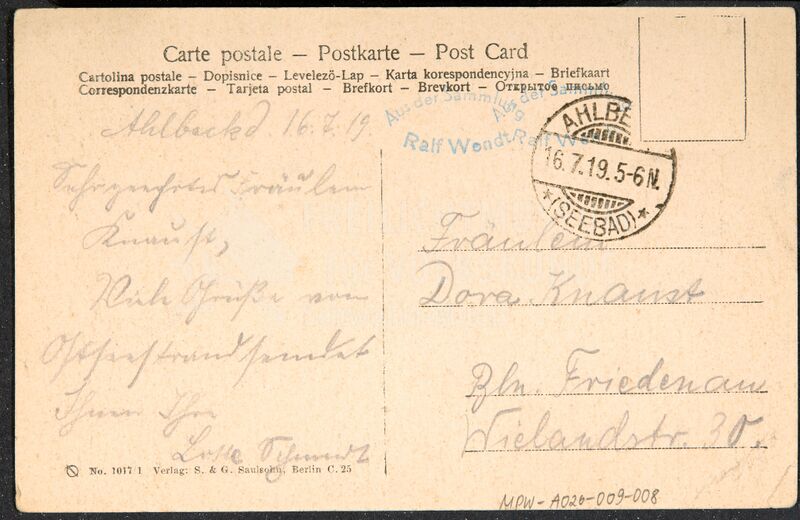 Carte postale – Postkarte – Post Card
Cartolina postale – Dopisnice – Levelező-Lap – Karta korespondencyjna – Briefkaart
Correspondenzkarte – Tarjeta postal – Brefkort – Brevkort – Открытое письмо
Aus der Sammlung
Ralf Wendt
Aus der Sammlung
Ralf We
AHLBE
16.7.19.5-6N.
* (SEEBAD) *
Ahlbeck d. 16.7.19.
Sehr geehrtes Fräulein
Knaust,
Viele Grüße vom
Ostseestrand sendet
Ihnen Ihre
Lotte Schmidt
Fräulein
Dora Knaust
Bln. Friedenau
Wielandstr. 30.
No. 1017/1 Verlag: S. & G. Saulsohn, Berlin C. 25
MPW-A026-009-008